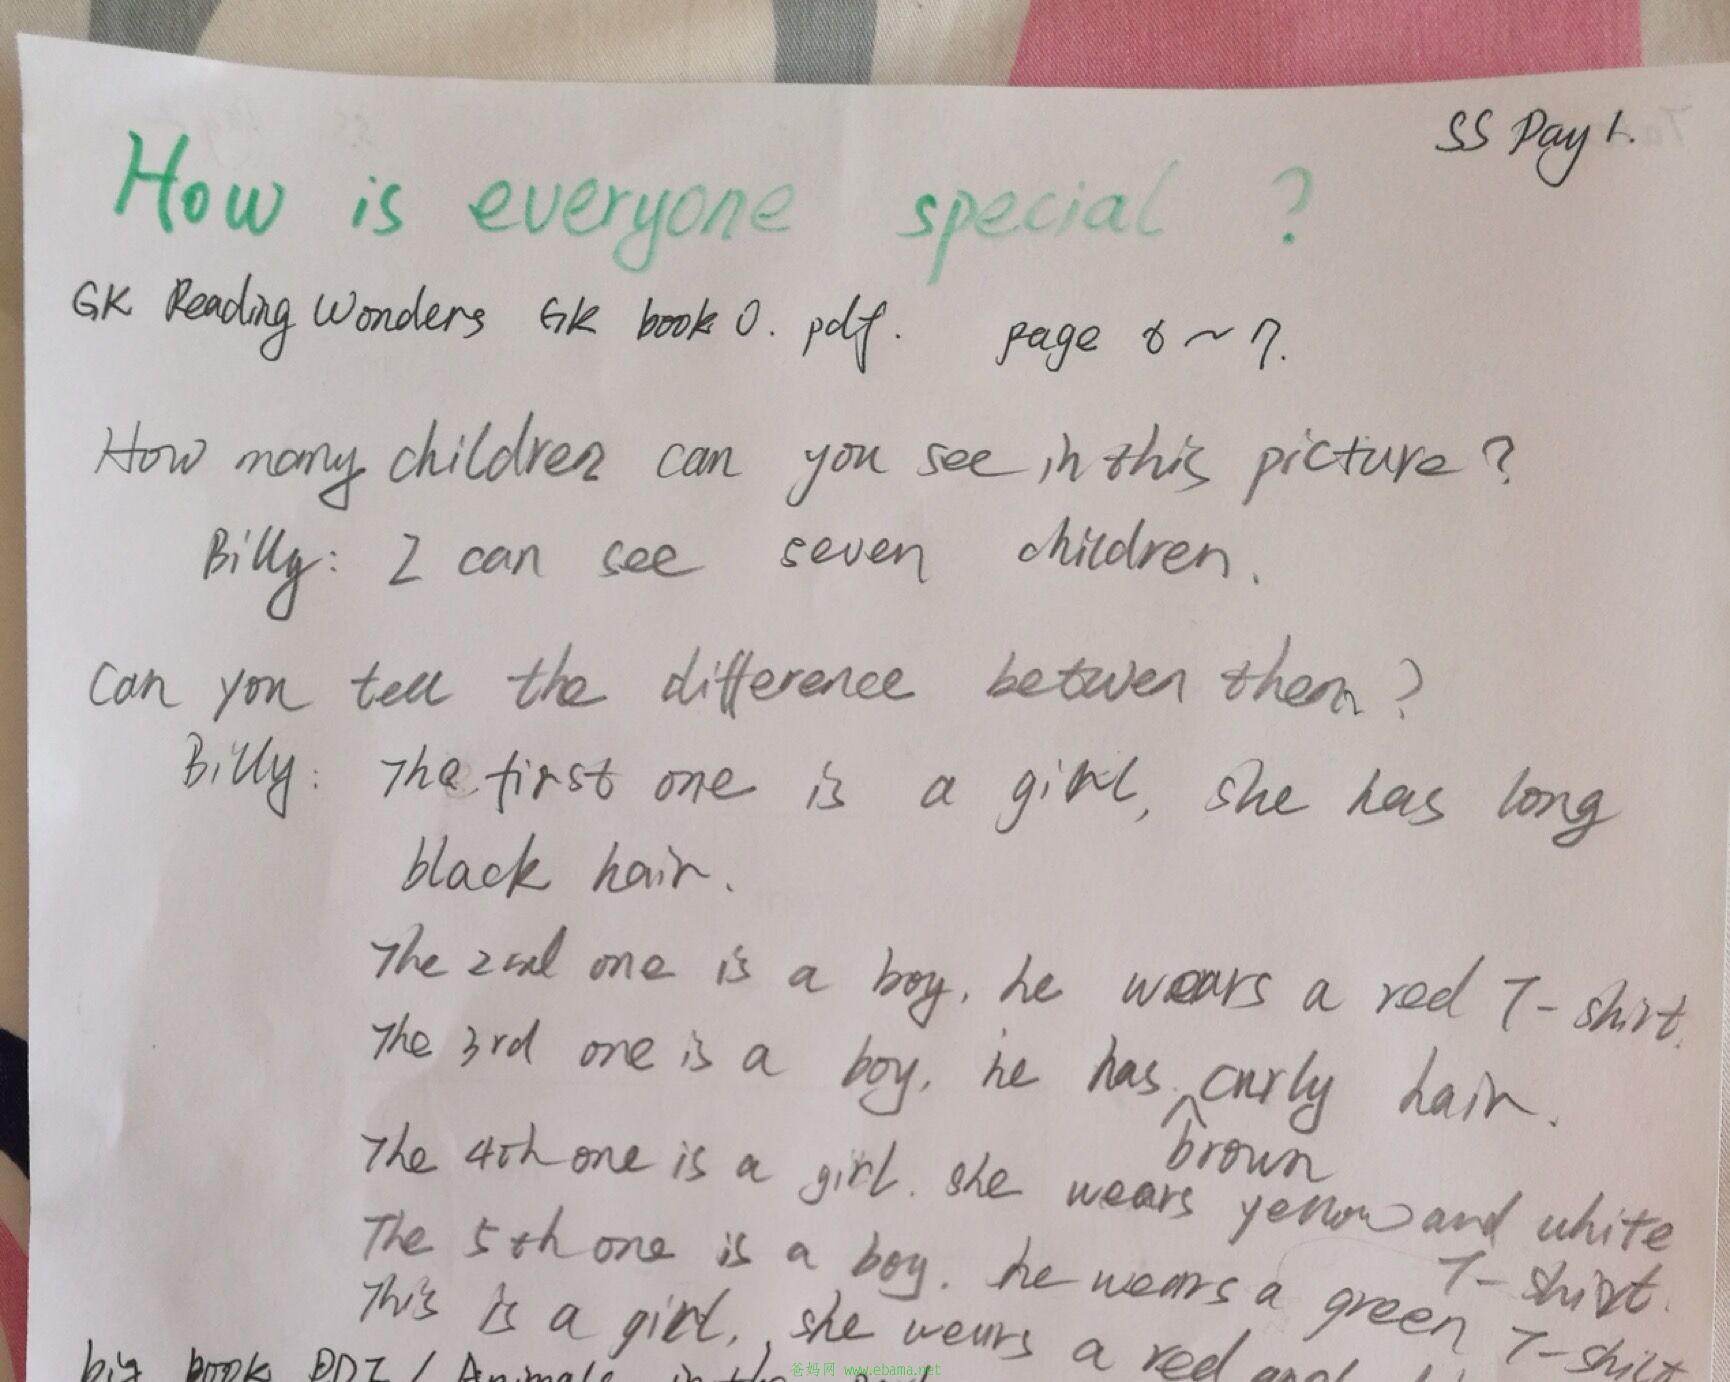 SS Day 1.
How is everyone special ?
GK Reading Wonders GK book 0. pdf. page 6 ~ 7.
How many children can you see in this picture ?
Billy: I can see seven children.
Can you tell the difference between them ?
Billy: The first one is a girl, she has long
black hair.
The 2nd one is a boy, he wears a red T-shirt.
The 3rd one is a boy, he has curly hair.
brown
The 4th one is a girl. she wears yellow and white
T-shirt.
The 5th one is a boy. he wears a green T-shirt
This is a girl, she wears a red and
big book / Animals in the
爸妈网 www.ebama.net